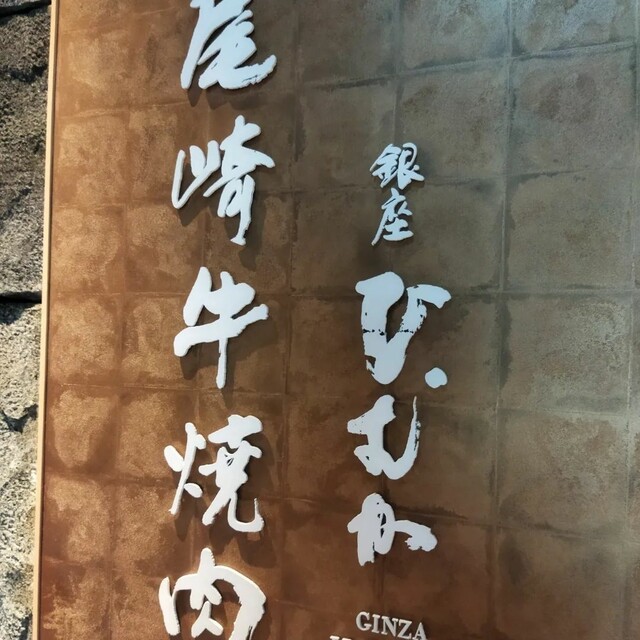 銀座
ひむか
GINZA
尾崎牛焼肉